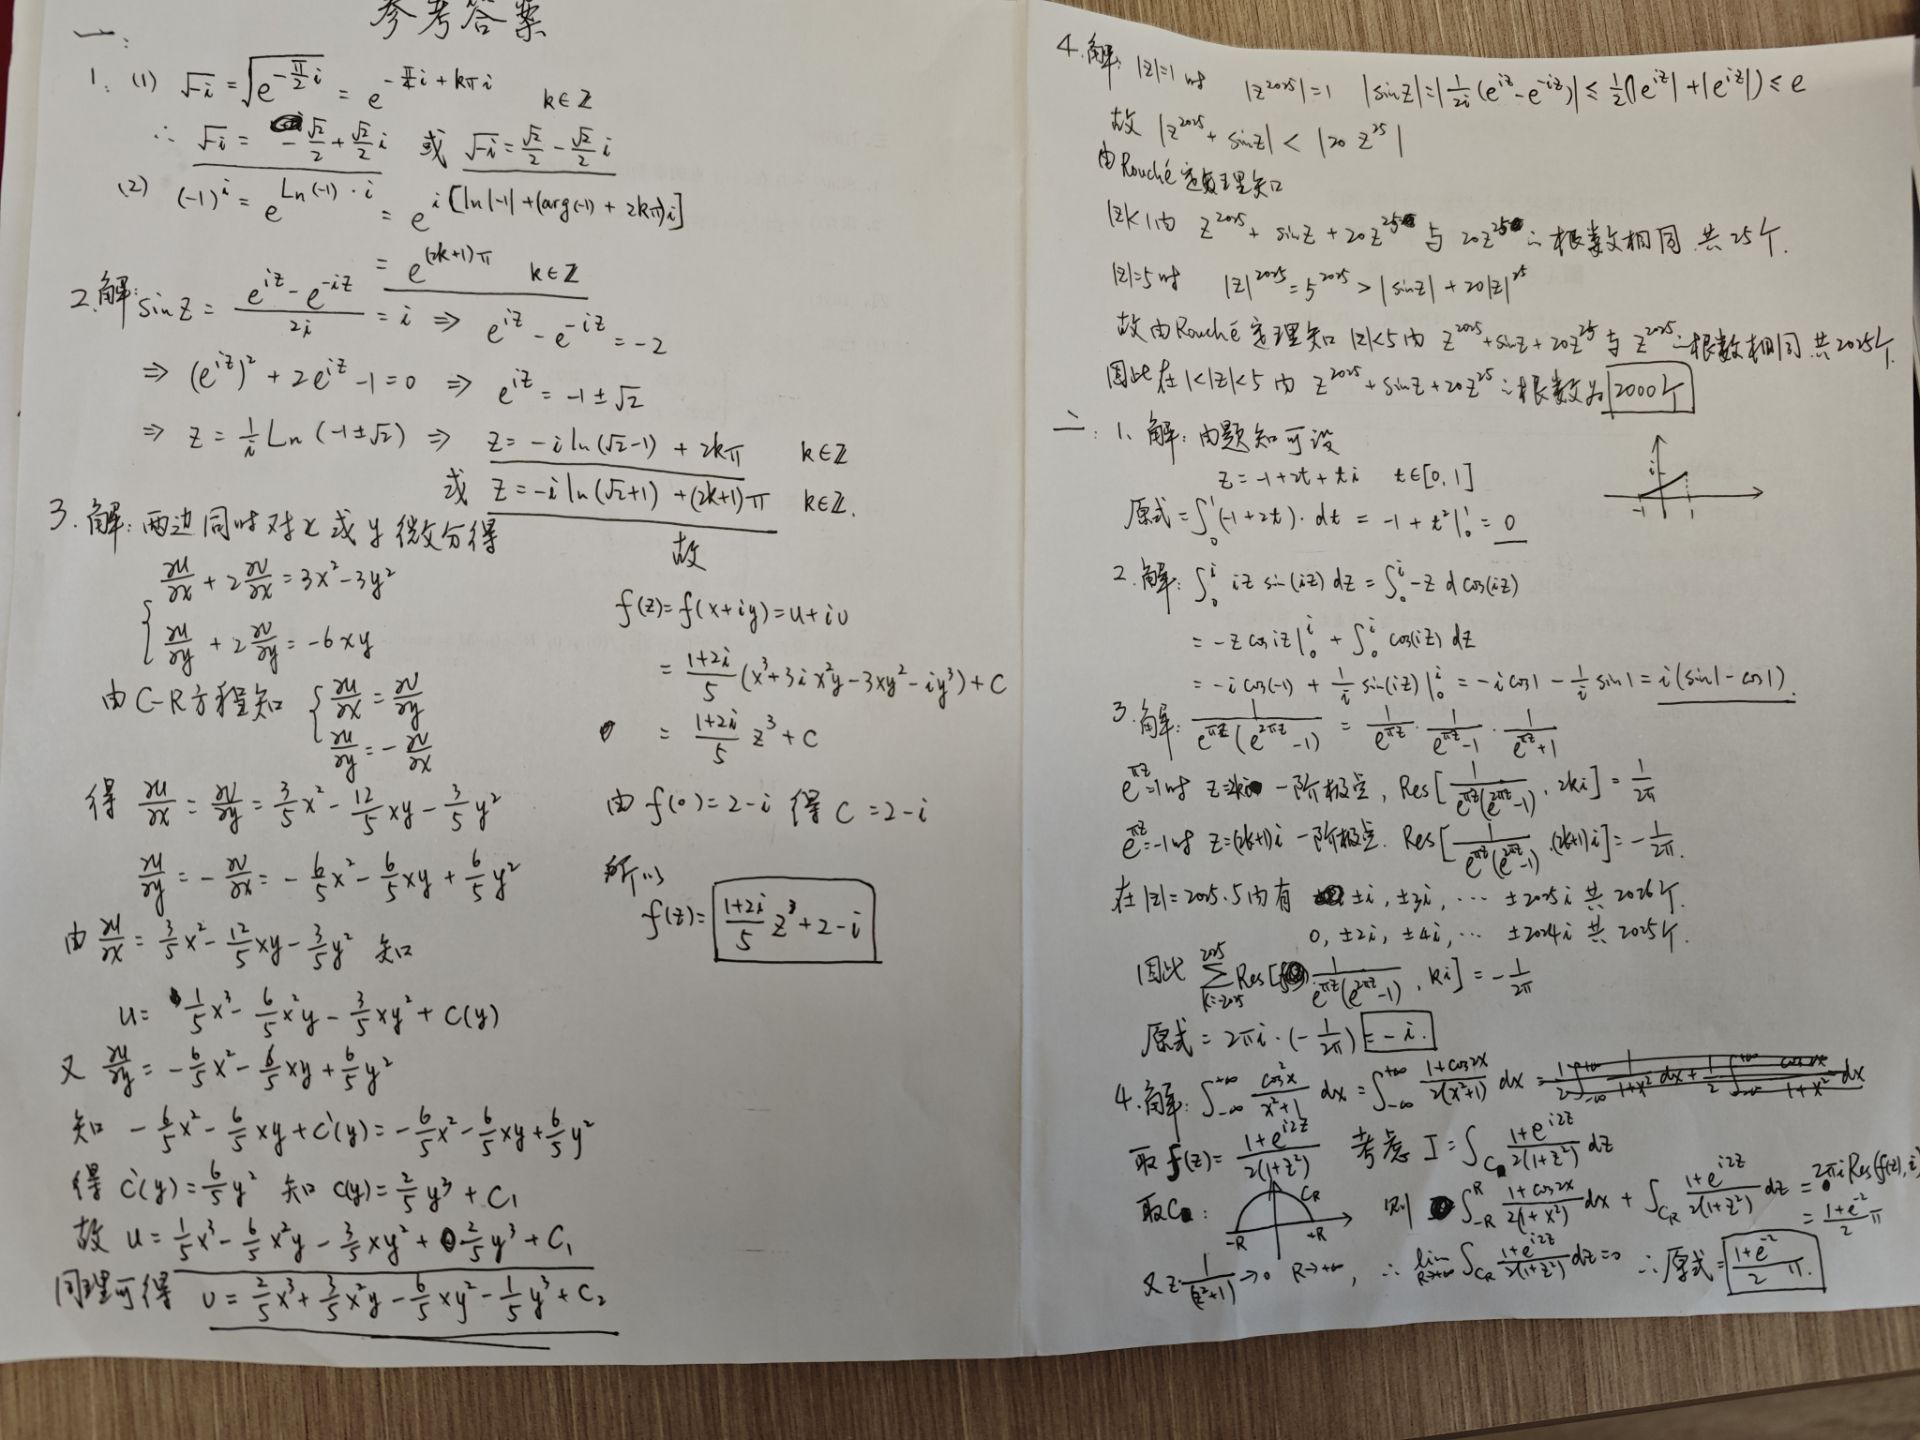 参考答案
一:
1. (1) √-i = √(e^{-π/2 i}) = e^{-π/4 i + kπi} k∈Z
∴ √-i = -√2/2 + √2/2 i 或 √-i = √2/2 - √2/2 i
(2) (-1)^i = e^{Ln(-1)·i} = e^{i[ln|-1| + (arg(-1) + 2kπ)i]}
= e^{(2k+1)π} k∈Z
2. 解: sinz = (e^{iz} - e^{-iz})/2i = i ⇒ e^{iz} - e^{-iz} = -2
⇒ (e^{iz})² + 2e^{iz} - 1 = 0 ⇒ e^{iz} = -1±√2
⇒ z = 1/i Ln(-1±√2) ⇒ z = -i ln(√2-1) + 2kπ k∈Z
或 z = -i ln(√2+1) + (2k+1)π k∈Z.
3. 解: 两边同时对x或y微分得
{ ∂u/∂x + 2∂v/∂x = 3x² - 3y²
∂u/∂y + 2∂v/∂y = -6xy
由C-R方程知 { ∂u/∂x = ∂v/∂y
∂u/∂y = -∂v/∂x
得 ∂u/∂x = ∂v/∂y = 3/5 x² - 12/5 xy - 3/5 y²
∂u/∂y = -∂v/∂x = -6/5 x² - 6/5 xy + 6/5 y²
由 ∂u/∂x = 3/5 x² - 12/5 xy - 3/5 y² 知
u = 1/5 x³ - 6/5 x²y - 3/5 xy² + C(y)
又 ∂u/∂y = -6/5 x² - 6/5 xy + 6/5 y²
知 -6/5 x² - 6/5 xy + C'(y) = -6/5 x² - 6/5 xy + 6/5 y²
得 C'(y) = 6/5 y² 知 C(y) = 2/5 y³ + C₁
故 u = 1/5 x³ - 6/5 x²y - 3/5 xy² + 2/5 y³ + C₁
同理可得 v = 2/5 x³ + 3/5 x²y - 6/5 xy² - 1/5 y³ + C₂
故
f(z) = f(x+iy) = u+iv
= (1+2i)/5 (x³ + 3ix²y - 3xy² - iy³) + C
= (1+2i)/5 z³ + C
由 f(0) = 2-i 得 C = 2-i
所以
f(z) = (1+2i)/5 z³ + 2 - i
4. 解: |z|=1时 |z^{2025}| = 1 |sinz| = |1/2i (e^{iz} - e^{-iz})| ≤ 1/2(|e^{iz}| + |e^{iz}|) ≤ e
故 |z^{2025} + sinz| < |20 z^{25}|
由Rouché定理知
|z|<1内 z^{2025} + sinz + 20z^{25} 与 20z^{25} ∴根数相同 共25个.
|z|=5时 |z|^{2025} = 5^{2025} > |sinz| + 20|z|^{25}
故由Rouché定理知 |z|<5内 z^{2025} + sinz + 20z^{25} 与 z^{2025} ∴根数相同 共2025个
因此在1<|z|<5内 z^{2025} + sinz + 20z^{25} ∴根数为 2000个
二: 1. 解: 由题知可设
z = -1+2t+ti t∈[0,1]
i
-1 1
原式 = ∫₀¹ (-1+2t)·dt = -1 + t²|₀¹ = 0
2. 解: ∫₀ⁱ iz sin(iz) dz = ∫₀ⁱ -z dcos(iz)
= -z cosiz|₀ⁱ + ∫₀ⁱ cos(iz) dz
= -i cos(-1) + 1/i sin(iz)|₀ⁱ = -i cos1 - 1/i sin1 = i(sin1 - cos1).
3. 解: 1/(e^{πz}(e^{2πz}-1)) = 1/e^{πz} · 1/(e^{πz}-1) · 1/(e^{πz}+1)
e^{πz}=1时 z=2ki 一阶极点, Res[1/(e^{πz}(e^{2πz}-1)), 2ki] = 1/2π
e^{πz}=-1时 z=(2k+1)i 一阶极点. Res[1/(e^{πz}(e^{2πz}-1)), (2k+1)i] = -1/2π.
在|z|=2025.5内有 ±i, ±3i, … ±2025i 共2026个.
0, ±2i, ±4i, … ±2024i 共2025个.
因此 Σ_{k=-2025}^{2025} Res[1/(e^{πz}(e^{2πz}-1)), ki] = -1/2π
原式 = 2πi·(-1/2π) = -i.
4. 解: ∫_{-∞}^{+∞} cos²x/(x²+1) dx = ∫_{-∞}^{+∞} (1+cos2x)/(2(x²+1)) dx = 1/2 ∫_{-∞}^{+∞} 1/(1+x²) dx + 1/2 ∫_{-∞}^{+∞} cos2x/(1+x²) dx
取 f(z) = (1+e^{i2z})/(2(1+z²)) 考虑 I = ∫_C (1+e^{i2z})/(2(1+z²)) dz
取C: -R +R C_R 则 ∫_{-R}^{R} (1+cos2x)/(2(1+x²)) dx + ∫_{C_R} (1+e^{i2z})/(2(1+z²)) dz = 2πi Res(f(z), i)
= (1+e^{-2})/2 π
又 z·1/(z²+1) → 0 R→+∞, ∴ lim_{R→+∞} ∫_{C_R} (1+e^{i2z})/(2(1+z²)) dz = 0 ∴原式 = (1+e^{-2})/2 π.